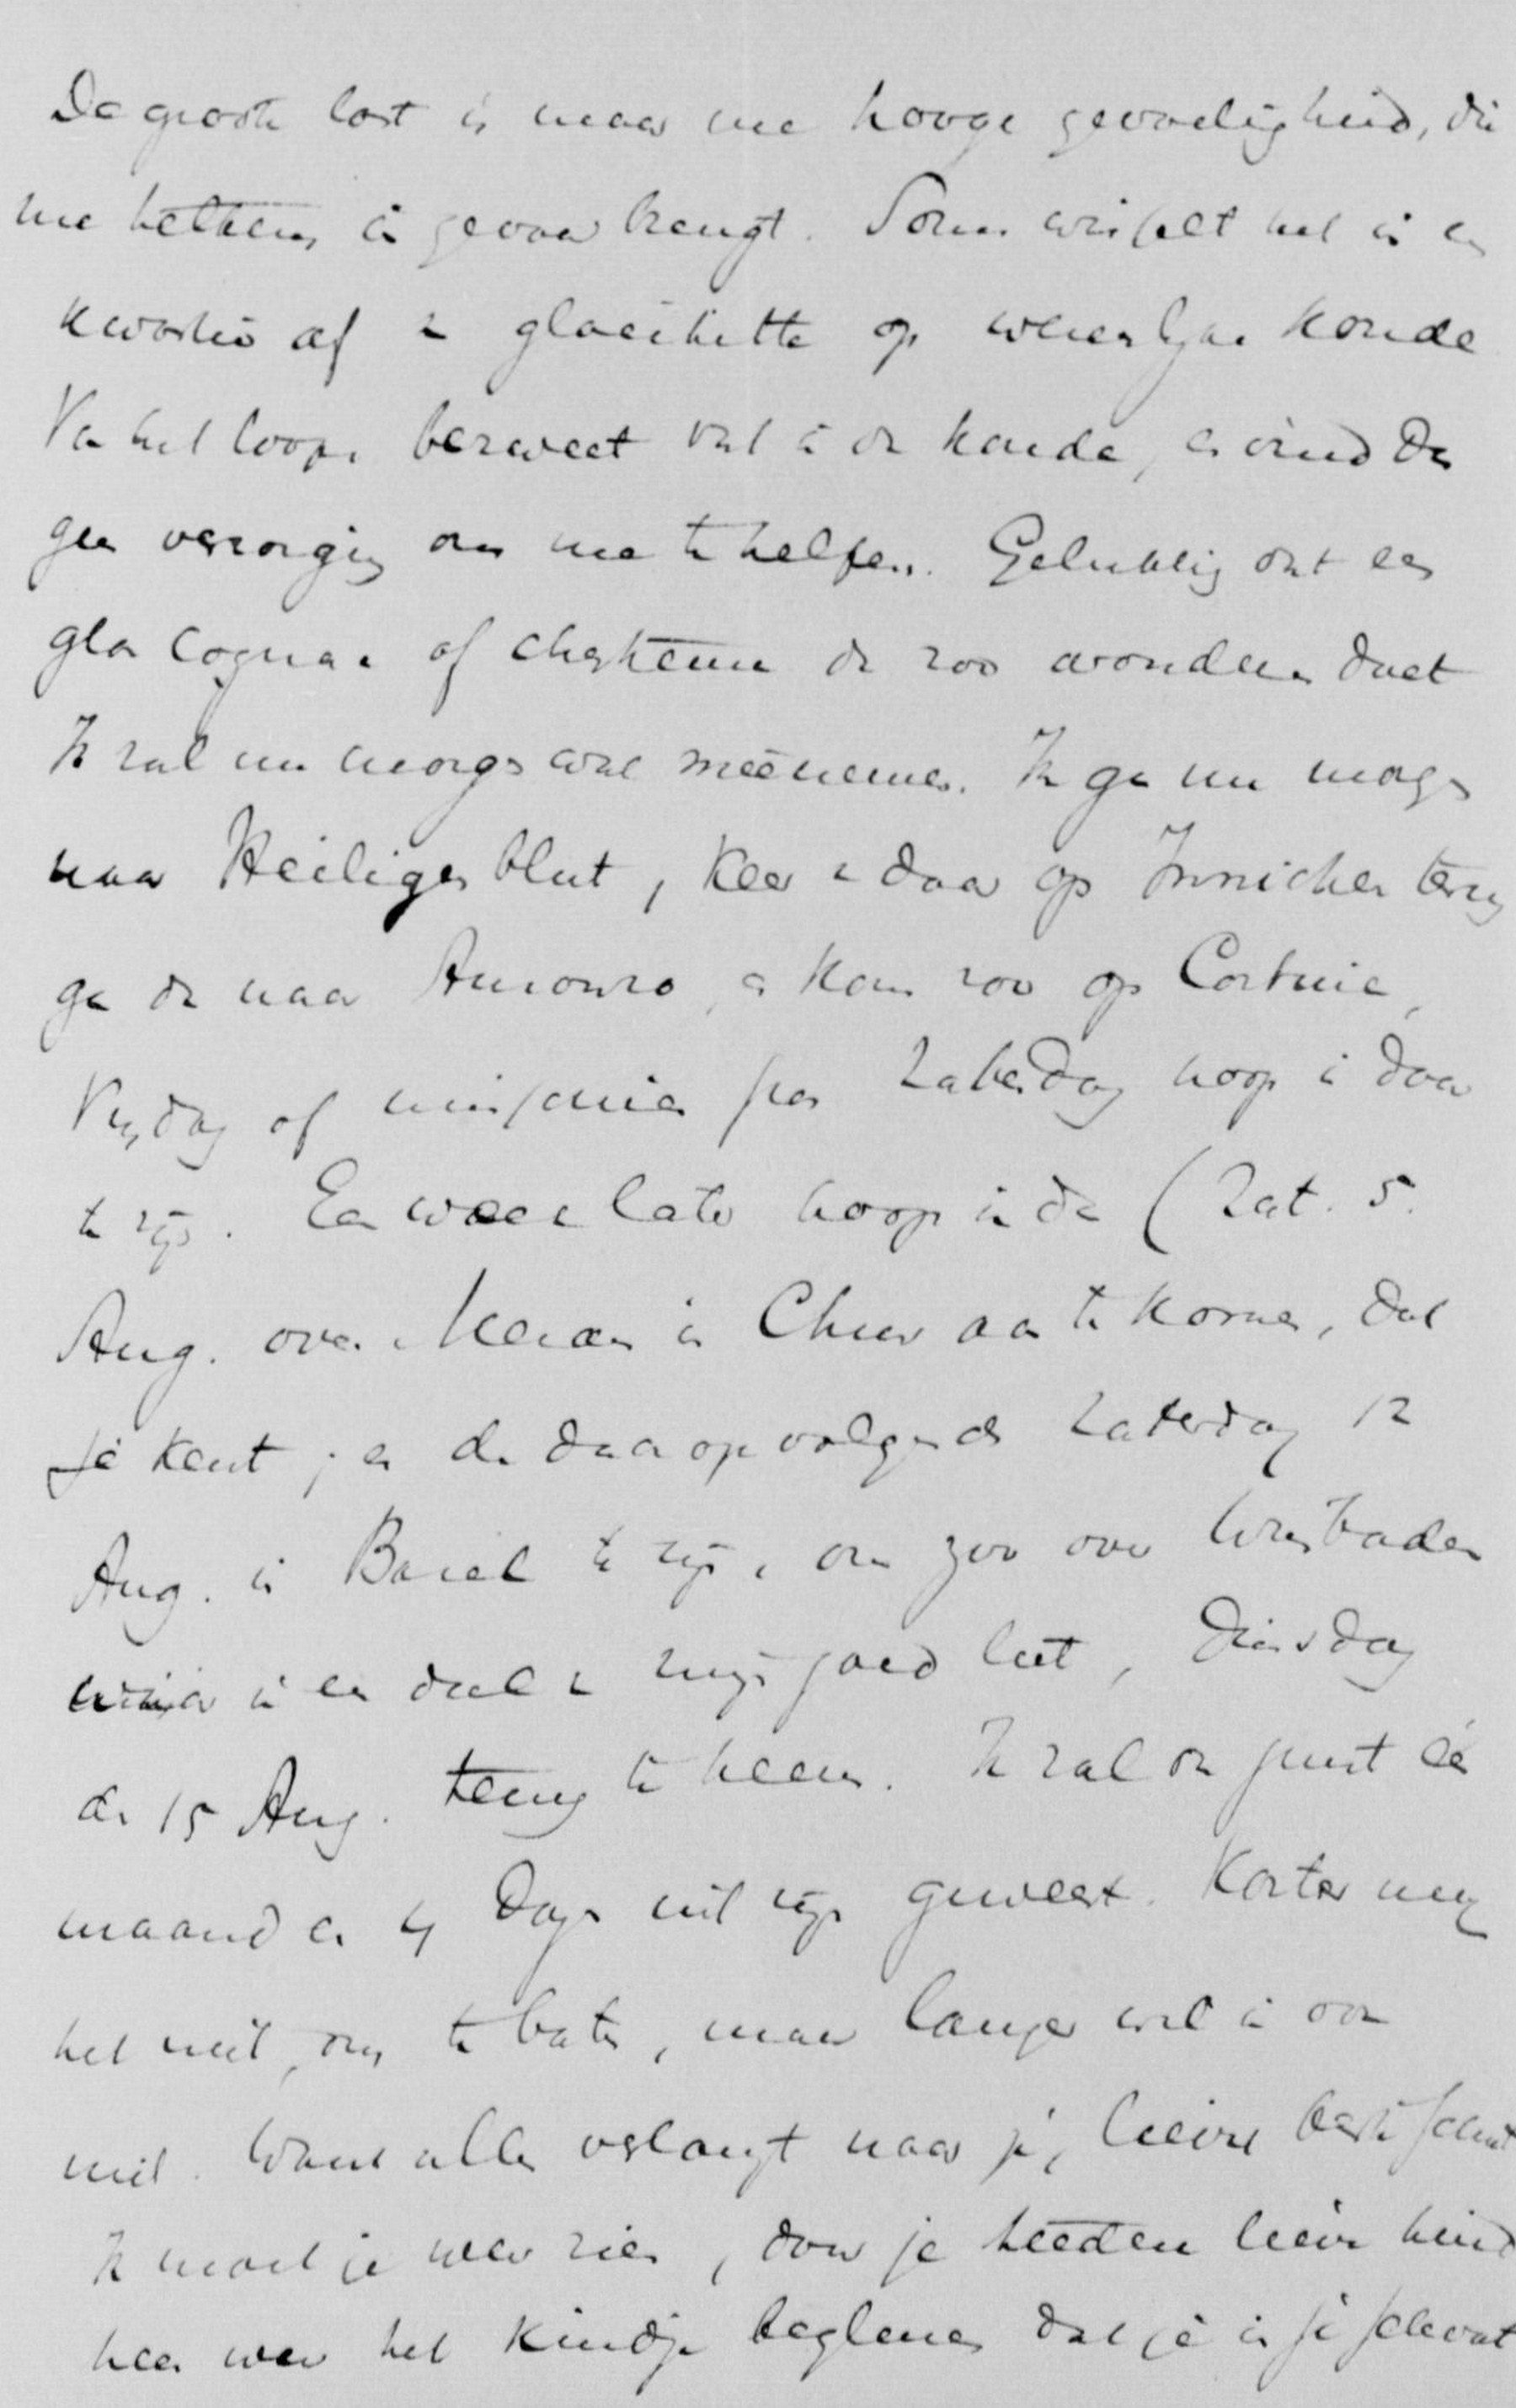 De groote last is maar me hooge gevoeligheid, die
me telkens in gevaar brengt. Soms wisselt het in een
kwartier af v. gloeihitte op vliesijne koude
Van het loopen bezweet val ik dan koude, en vind dan
geen verzorging om me te helpen. Gelukkig dat een
glas Cognac of chartreuse dan zoo wonderen doet
Ik zal nu morgen wat meenemen. Ik ga nu morgen
naar Heiligenblut, keer v. daar op Innichen terug
ga dan naar Auronzo, en kom zoo op Cortina,
Vrijdag of misschien pas Zaterdag hoop ik daar
te zijn. Een week later hoop ik dan (Zat. 5.
Aug. over Meran in Chur aan te komen, dat
je kent; en den daaropvolgenden Zaterdag 12
Aug. in Basel te zijn, om zoo over Wiesbaden
waar ik een deel v. mijn goed liet, Dinsdag
den 15 Aug. terug te keeren. Ik zal dan juist één
maand en 4 dagen uit zijn geweest. Korter mag
het niet, om te baten, maar langer wil ik ook
niet. Want alles verlangt naar je, lieve beste schat
Ik moet je weer zien, door je heeden lieve kind
heen weer het kindje beglenen dat je in je schoot